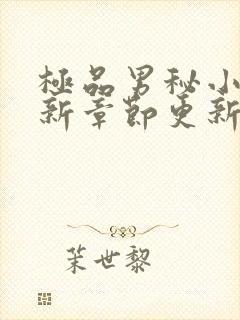 極品男秘小
新章節更新
茉世黎